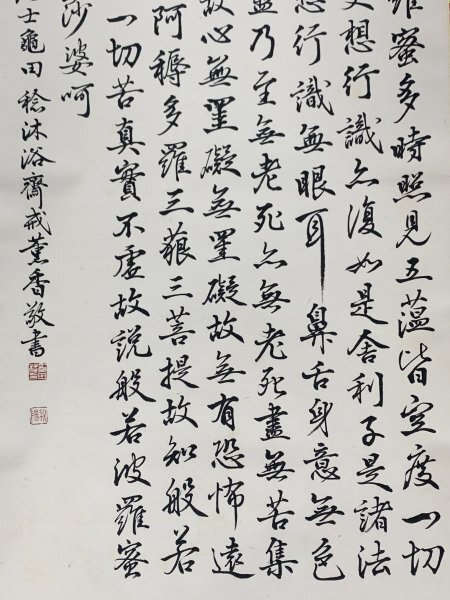 羅蜜多時照見五蘊皆空度一切
受想行識亦復如是舍利子是諸法
想行識無眼耳鼻舌身意無色
盡乃至無老死亦無老死盡無苦集
故心無罣礙無罣礙故無有恐怖遠
阿耨多羅三藐三菩提故知般若
一切苦真實不虛故說般若波羅蜜
莎婆呵
士龜田稔沐浴齋戒薰香敬書